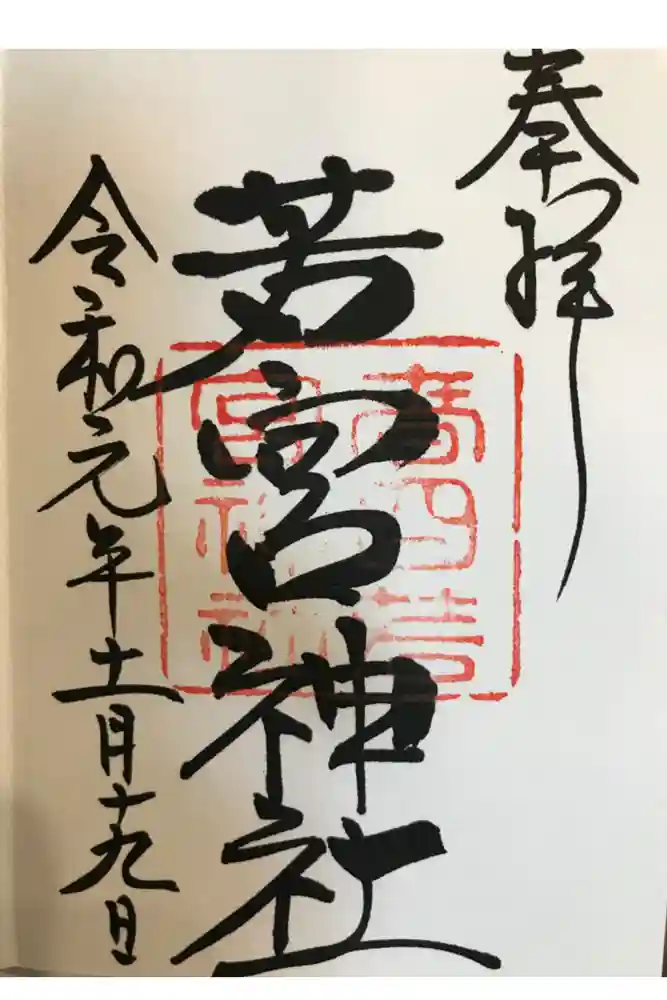 奉拝
若宮神社
高四若
宮神社
令和元年十一月十九日